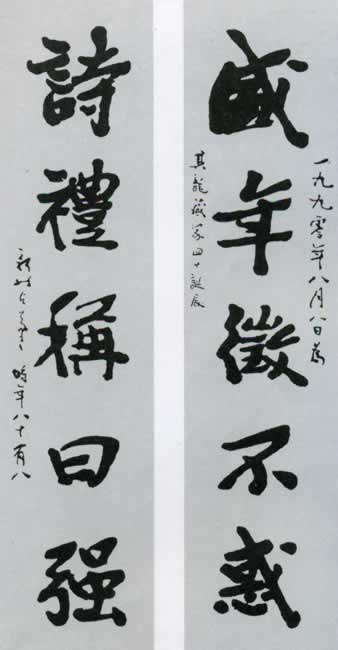 一九九零年八月八日為
盛年徵不惑
其龍藏家四十誕辰
詩禮稱曰强
時年八十有八